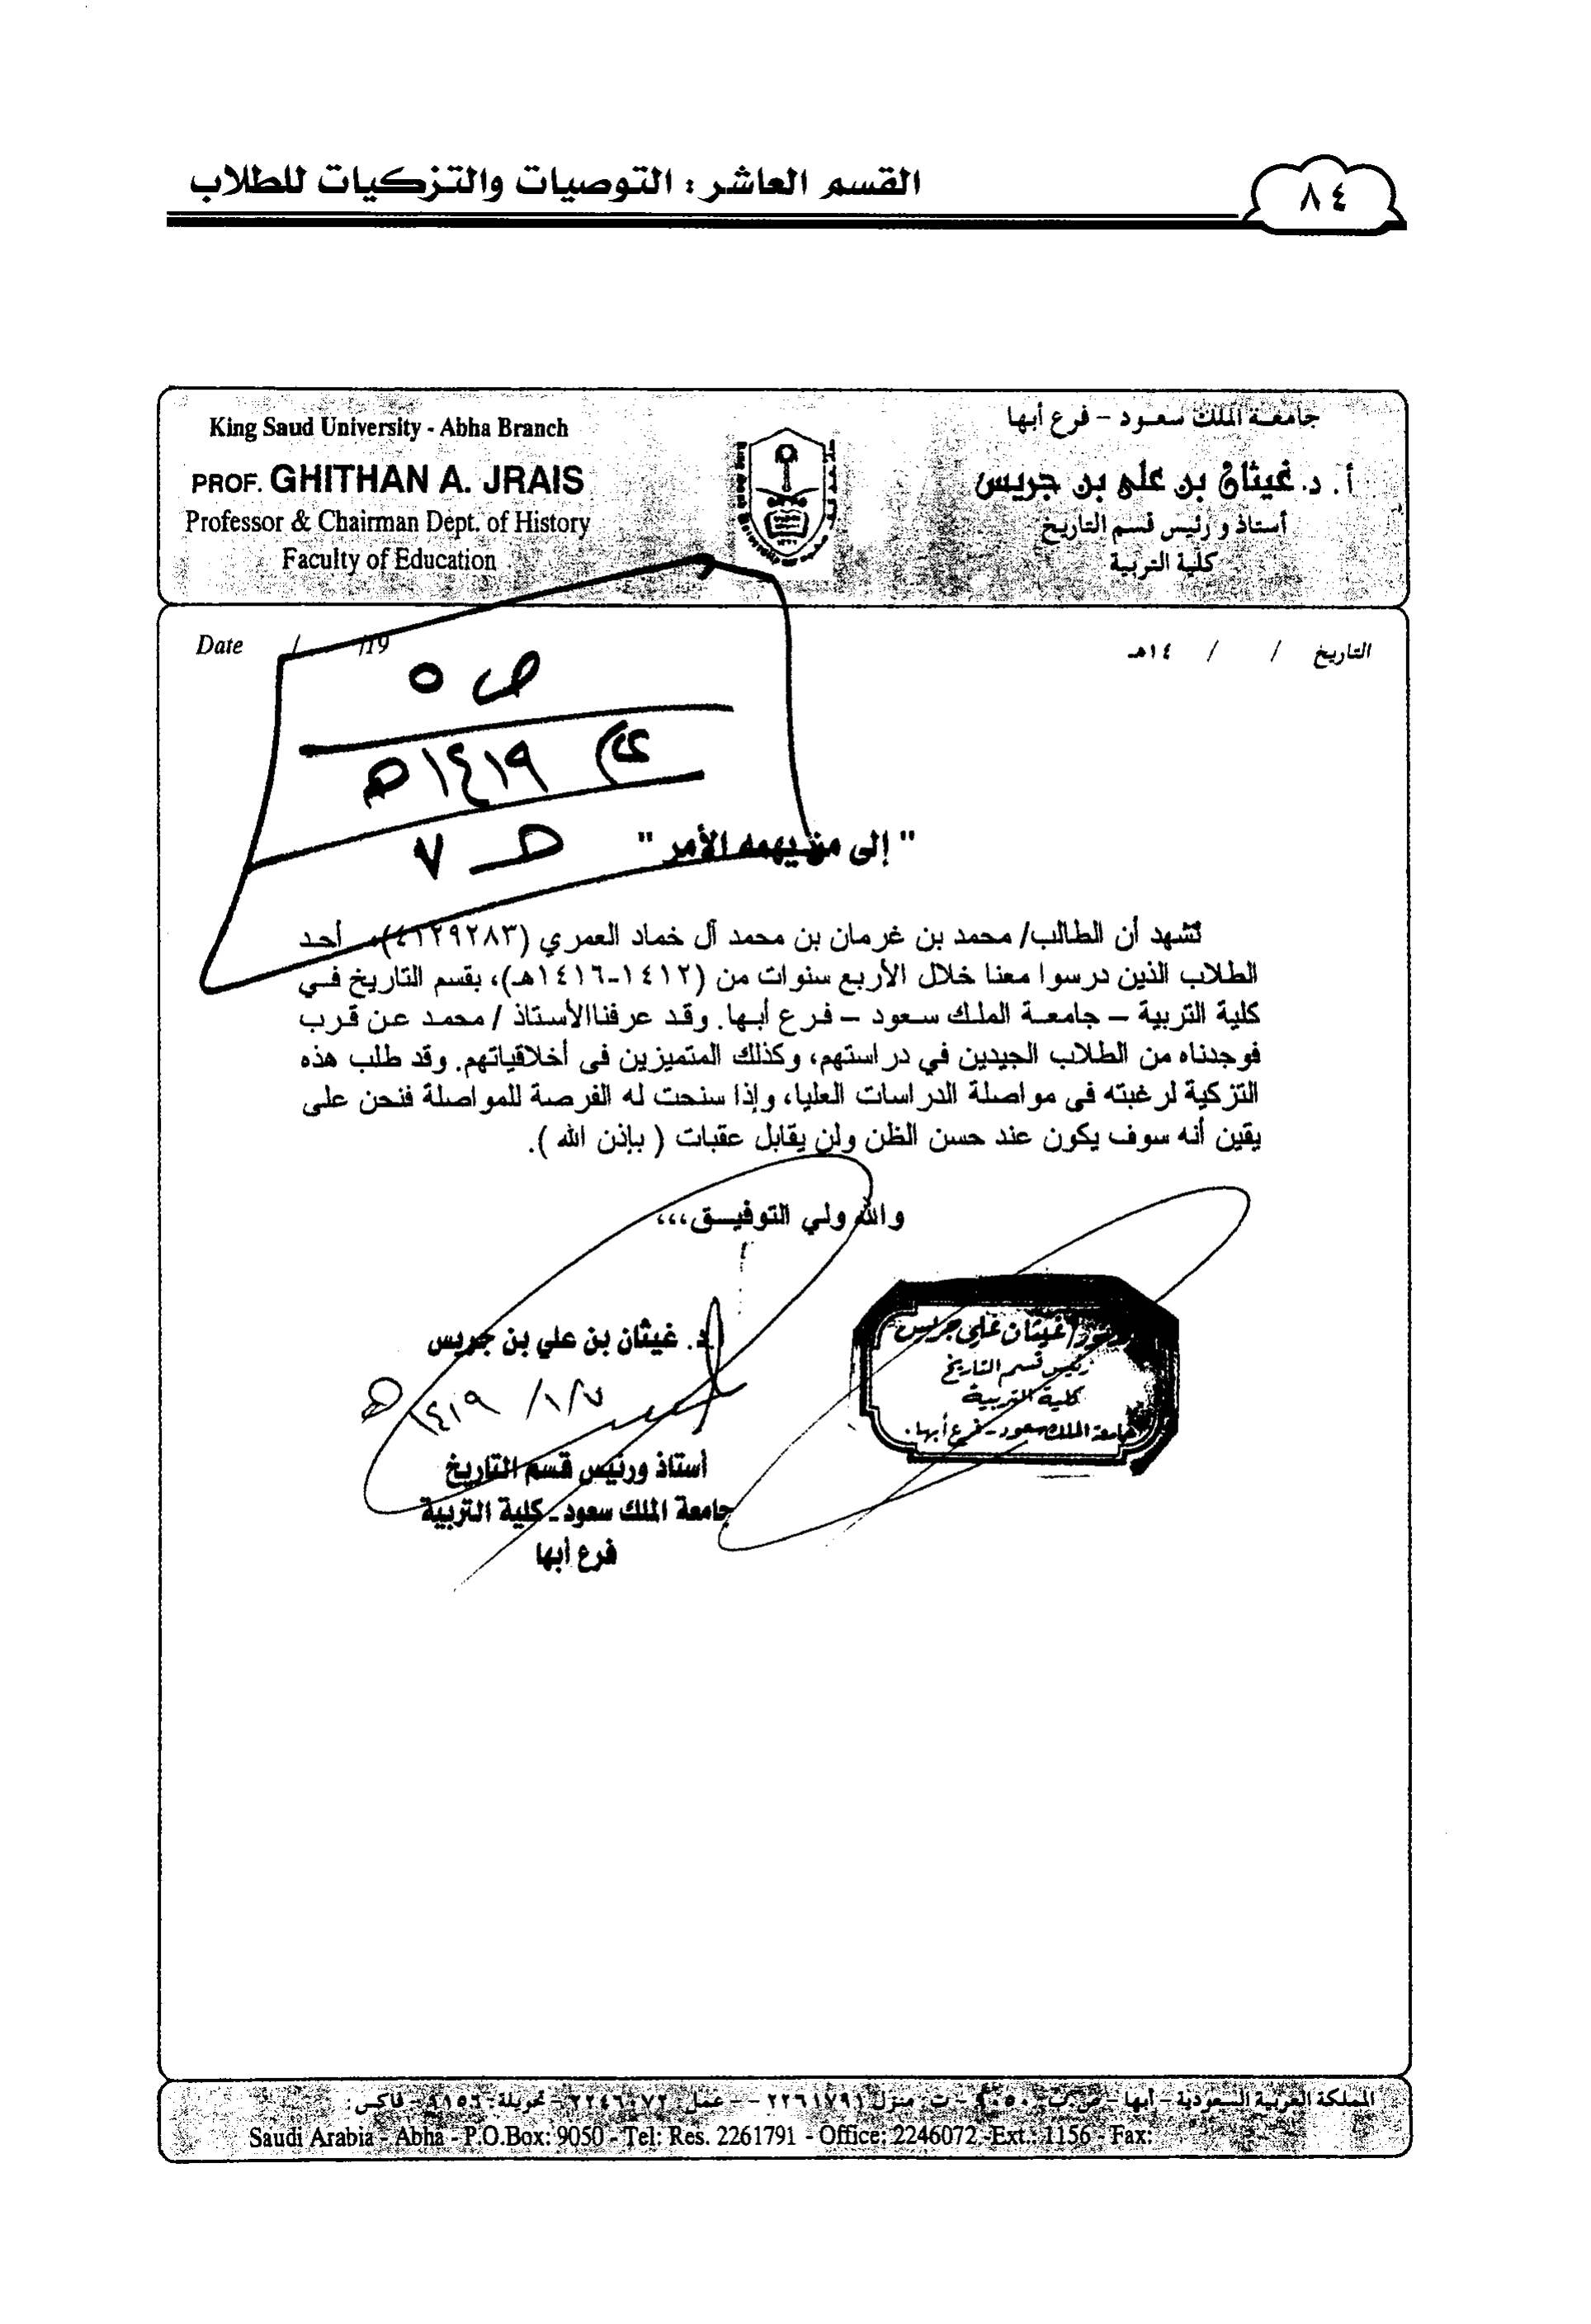 القسم العاشر : التوصيات والتزكيات للطلاب
٨٤
King Saud University - Abha Branch
PROF. GHITHAN A. JRAIS
Professor & Chairman Dept. of History
Faculty of Education
جامعة الملك سعود - فرع أبها
أ. د. غيثان بن على بن جريس
أستاذ و رئيس قسم التاريخ
كلية التربية
Date / /19
التاريخ / / ١٤هـ
ص ٥
١٤١٩هـ
حـ ٧
" إلى من يهمه الأمر "
نشهد أن الطالب/ محمد بن غرمان بن محمد آل خماد العمري (٤١٢٩٢٨٣)، أحد
الطلاب الذين درسوا معنا خلال الأربع سنوات من (١٤١٢-١٤١٦هـ)، بقسم التاريخ في
كلية التربية – جامعة الملك سعود – فرع أبها. وقد عرفناالأستاذ / محمد عن قرب
فوجدناه من الطلاب الجيدين في دراستهم، وكذلك المتميزين فى أخلاقياتهم. وقد طلب هذه
التزكية لرغبته فى مواصلة الدراسات العليا، وإذا سنحت له الفرصة للمواصلة فنحن على
يقين أنه سوف يكون عند حسن الظن ولن يقابل عقبات ( بإذن الله ).
والله ولي التوفيق،،،
د. غيثان بن علي بن جريس
١٤١٩/١/٧هـ
أستاذ ورئيس قسم التاريخ
جامعة الملك سعود - كلية التربية
فرع أبها
غيثان علي جريس
رئيس قسم التاريخ
كلية التربية
جامعة الملك سعود - فرع أبها.
المملكة العربية السعودية - أبها - ص.ب: ٩٠٥٠ - ت: منزل ٢٢٦١٧٩١ - - عمل ٢٢٤٦٠٧٢ - تحويلة: ١١٥٦ - فاكس:
Saudi Arabia - Abha - P.O.Box: 9050 - Tel: Res. 2261791 - Office: 2246072 -Ext.: 1156 - Fax: